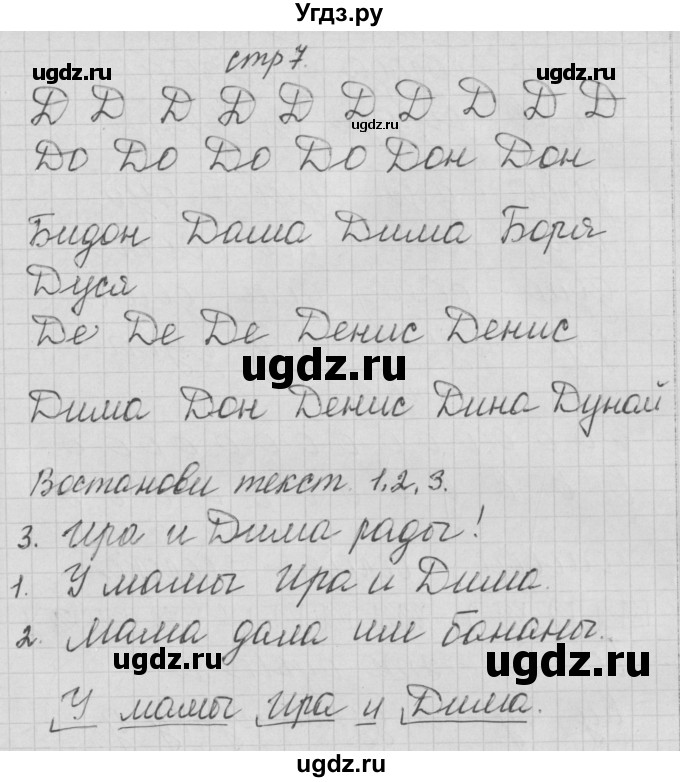 Угдз.ру
стр 7.
ugdz.ru ugdz.ru ugdz.ru
Д Д Д Д Д Д Д Д Д Д
ugdz.ru
До До До До Дон Дон
Бидон Даша Дима Боря
Дуся
Де Де Де Денис Денис
ugdz.ru
Дима Дон Денис Дина Дунай
Востанови текст 1,2,3.
3. Ира и Дима рады!
1. У мамы Ира и Дима.
2. Мама дала им бананы.
ugdz.ru ugdz.ru
У мамы Ира и Дима.
ugdz.ru